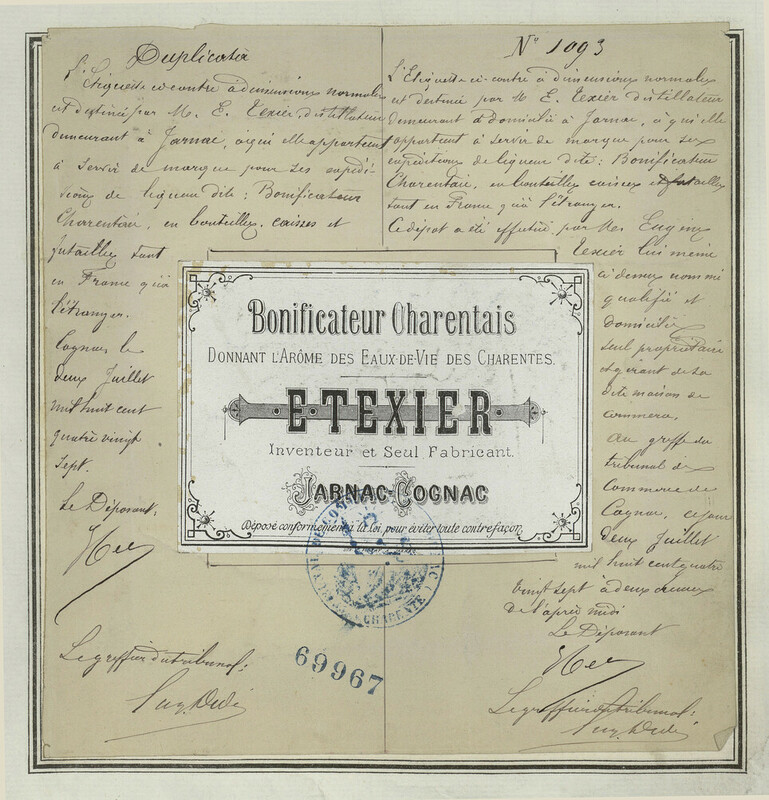 Duplicata
L'Etiquette ci-contre à dimensions normales
est destinée par M. E. Texier distillateur
demeurant à Jarnac, à qui elle appartient
à servir de marque pour ses expédi-
tions de liqueur dite: Bonificateur
Charentais, en bouteilles, caisses et
futailles tant
en France qu'à
l'étranger.
Cognac, le
deux Juillet
mil huit cent
quatre vingt
sept.
Le Déposant:
Le greffier du tribunal:
Bonificateur Charentais
DONNANT L'ARÔME DES EAUX-DE-VIE DES CHARENTES.
E TEXIER
Inventeur et Seul Fabricant.
JARNAC-COGNAC
Déposé conformément à la loi, pour éviter toute contrefaçon.
CHARENTE
69967
N° 1093
L'Etiquette ci-contre à dimensions normales
est destinée par M E. Texier distillateur
demeurant & domicilié à Jarnac, à qui elle
appartient à servir de marque pour ses
expéditions de liqueur dite: Bonificateur
Charentais, en bouteilles caisses et futailles
tant en France qu'à l'étranger.
Ce dépôt a été effectué par M. Eugène
Texier lui même
ci dessus nommé
qualifié et
domicilié
seul propriétaire
et gérant de sa
dite maison de
commerce,
Au greffe du
tribunal de
Commerce de
Cognac, ce jour
deux Juillet
mil huit cent quatre
vingt sept à deux heures
de l'après midi
Le Déposant
Le greffier du tribunal: